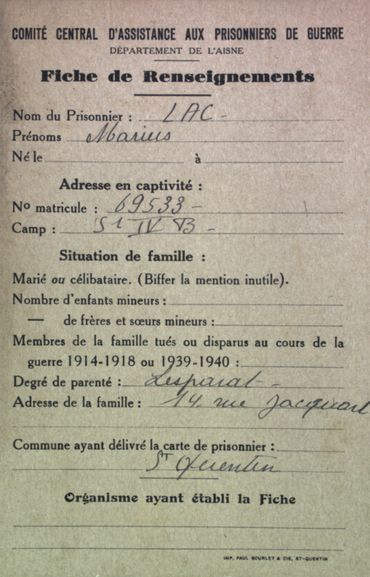 COMITÉ CENTRAL D'ASSISTANCE AUX PRISONNIERS DE GUERRE
DÉPARTEMENT DE L'AISNE
Fiche de Renseignements
Nom du Prisonnier : LAC -
Prénoms Marius
Né le à
Adresse en captivité :
No matricule : 69533 -
Camp : St IV B -
Situation de famille :
Marié ou célibataire. (Biffer la mention inutile).
Nombre d'enfants mineurs :
— de frères et sœurs mineurs :
Membres de la famille tués ou disparus au cours de la
guerre 1914-1918 ou 1939-1940 :
Degré de parenté :
Adresse de la famille : 14 rue Jacquart
Commune ayant délivré la carte de prisonnier :
St Quentin
Organisme ayant établi la Fiche
IMP. PAUL BOURLET & CIE, ST-QUENTIN